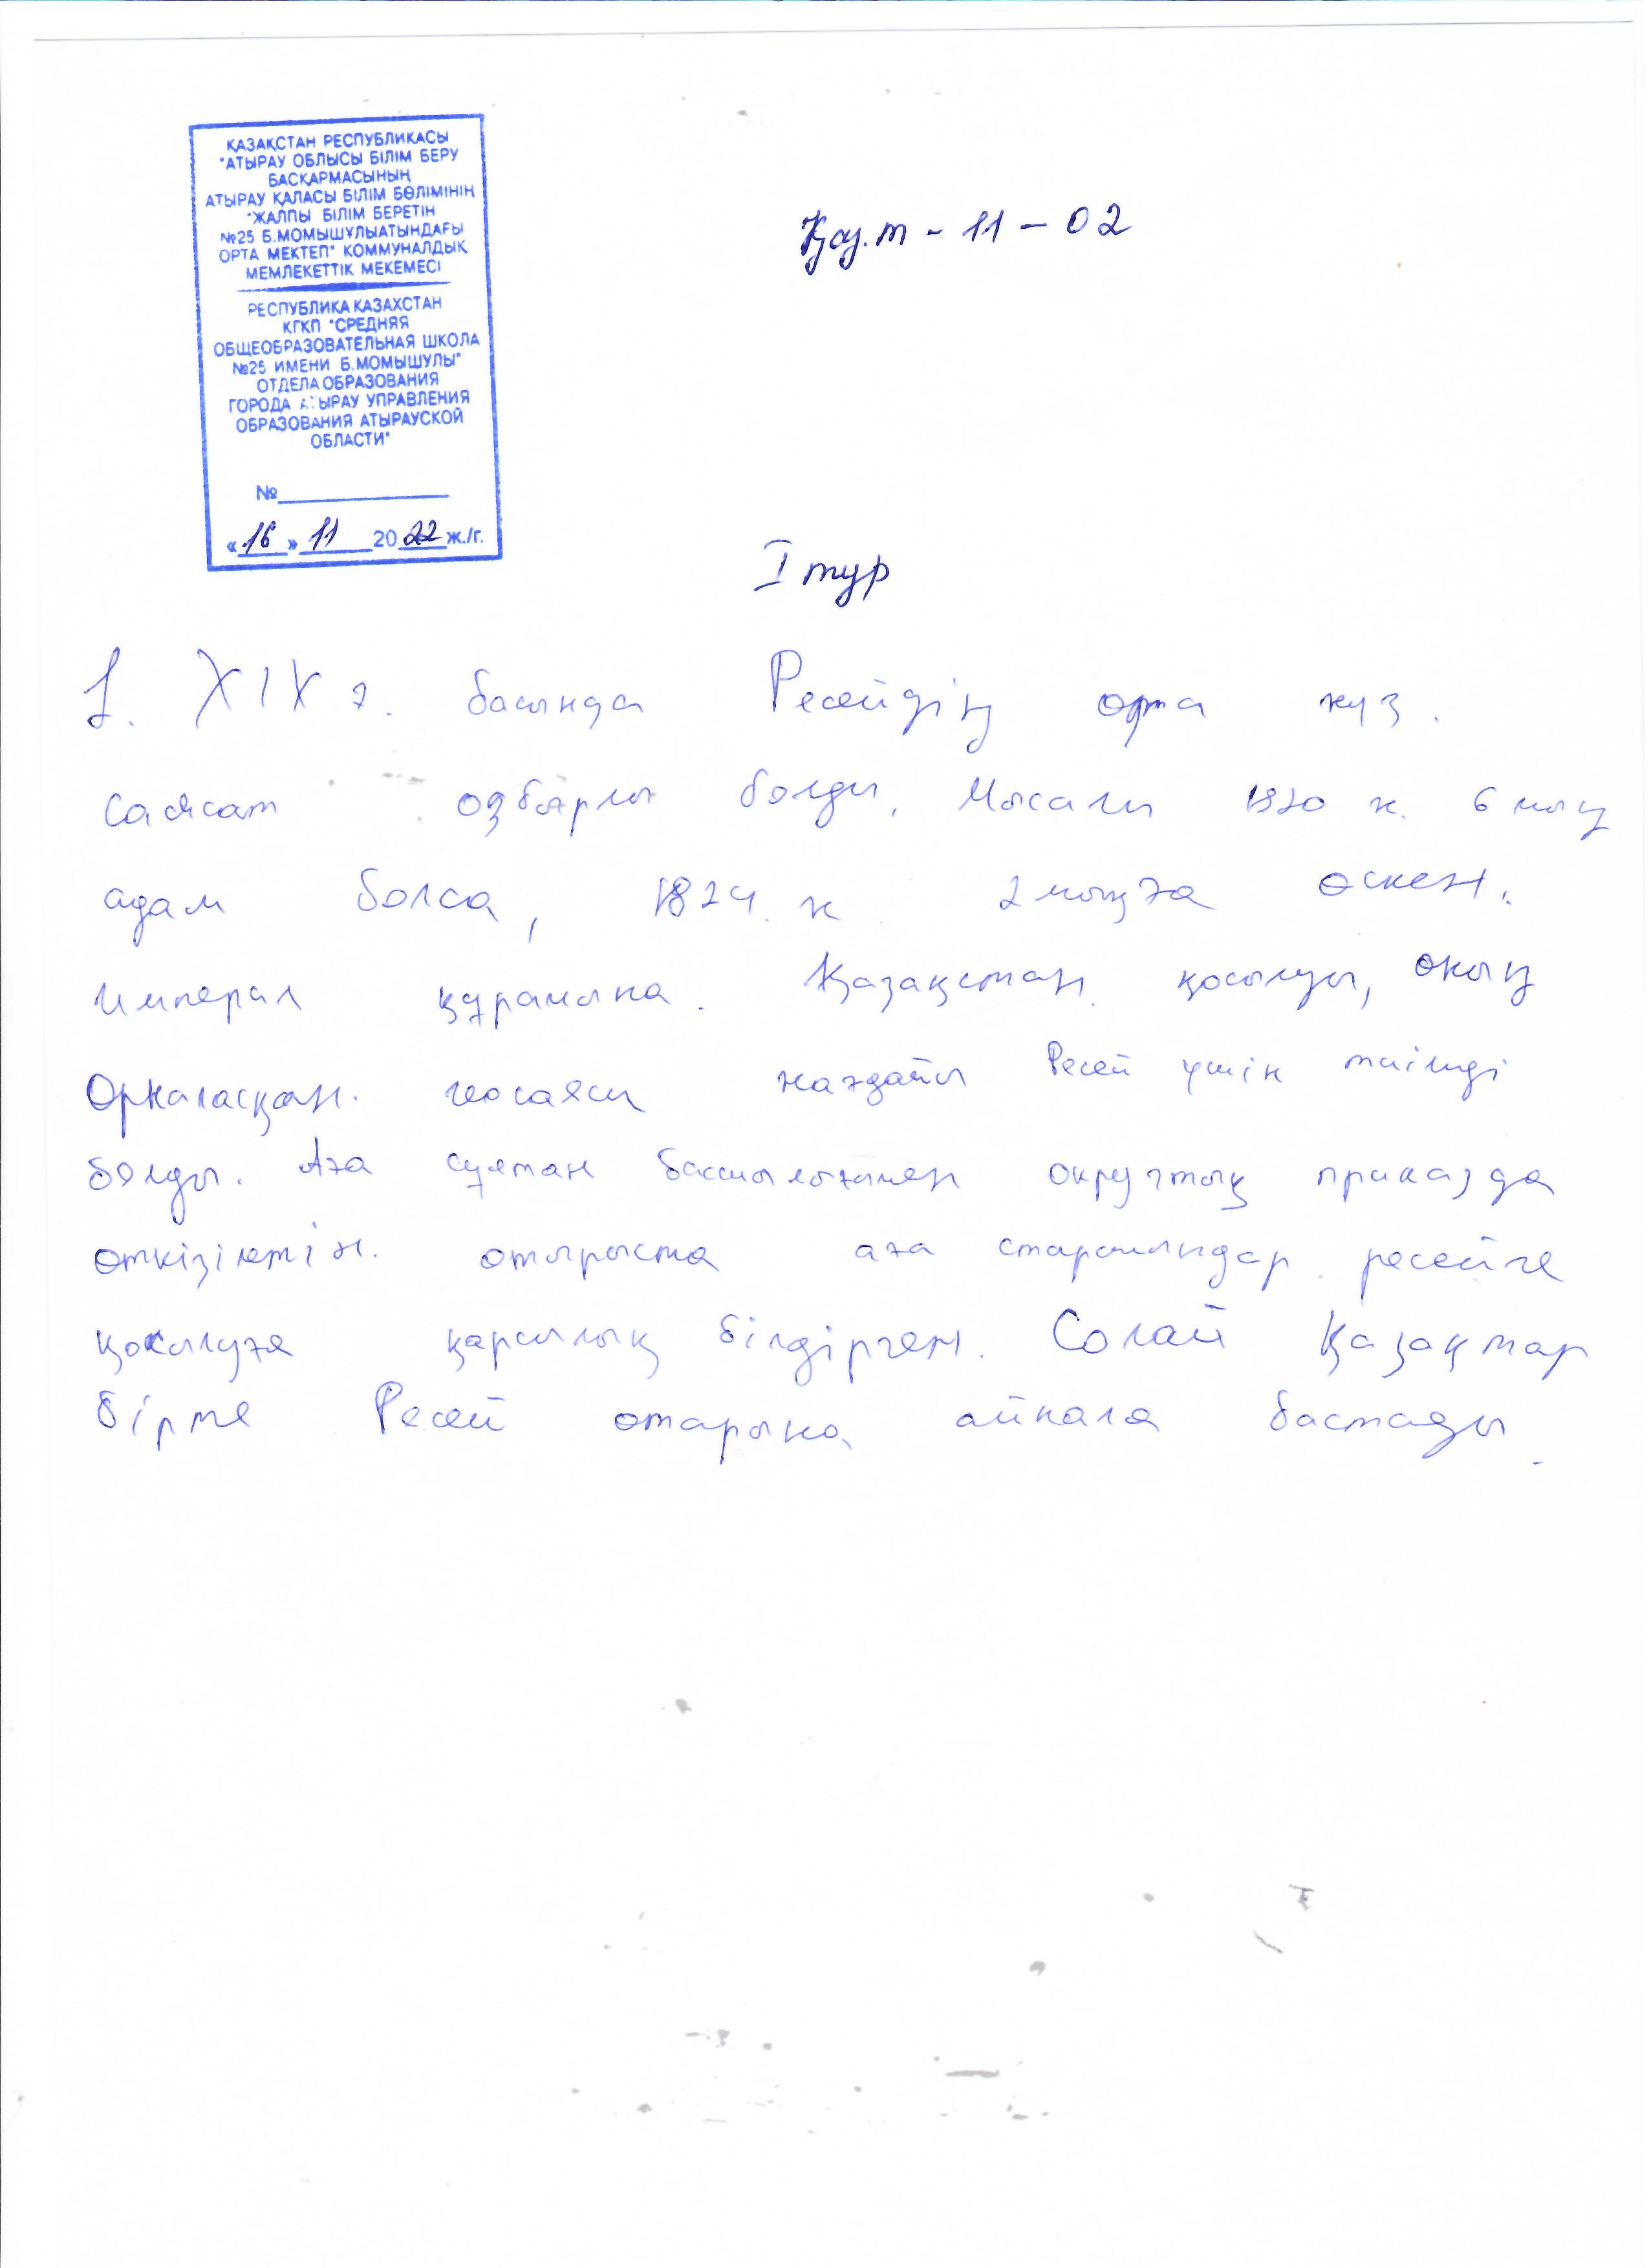 ҚАЗАҚСТАН РЕСПУБЛИКАСЫ
"АТЫРАУ ОБЛЫСЫ БІЛІМ БЕРУ
БАСҚАРМАСЫНЫҢ
АТЫРАУ ҚАЛАСЫ БІЛІМ БӨЛІМІНІҢ
"ЖАЛПЫ БІЛІМ БЕРЕТІН
№25 Б.МОМЫШҰЛЫАТЫНДАҒЫ
ОРТА МЕКТЕП" КОММУНАЛДЫҚ
МЕМЛЕКЕТТІК МЕКЕМЕСІ
РЕСПУБЛИКА КАЗАХСТАН
КГКП "СРЕДНЯЯ
ОБЩЕОБРАЗОВАТЕЛЬНАЯ ШКОЛА
№25 ИМЕНИ Б.МОМЫШУЛЫ"
ОТДЕЛА ОБРАЗОВАНИЯ
ГОРОДА АТЫРАУ УПРАВЛЕНИЯ
ОБРАЗОВАНИЯ АТЫРАУСКОЙ
ОБЛАСТИ"
№
«16» 11 2022 ж./г.
Қаз.т - 11 - 02
I тур
1. XIX ғ. басында Ресейдің орта жүз.
саясат озбырлы болды. Мысалы 1820 ж. 6 мың
адам болса, 1824. ж 2 мыңға өскен.
Империя құрамына. Қазақстан қосылуы, оның
Орналасқан. геосаяси жағдайы Ресей үшін тиімді
болды. Аға сұлтан басшылығымен округтық приказда
өткізілетін. отырыста аға старшындар ресейге
қосылуға қарсылық білдірген. Солай Қазақтар
бірте Ресей отарына айнала бастады.